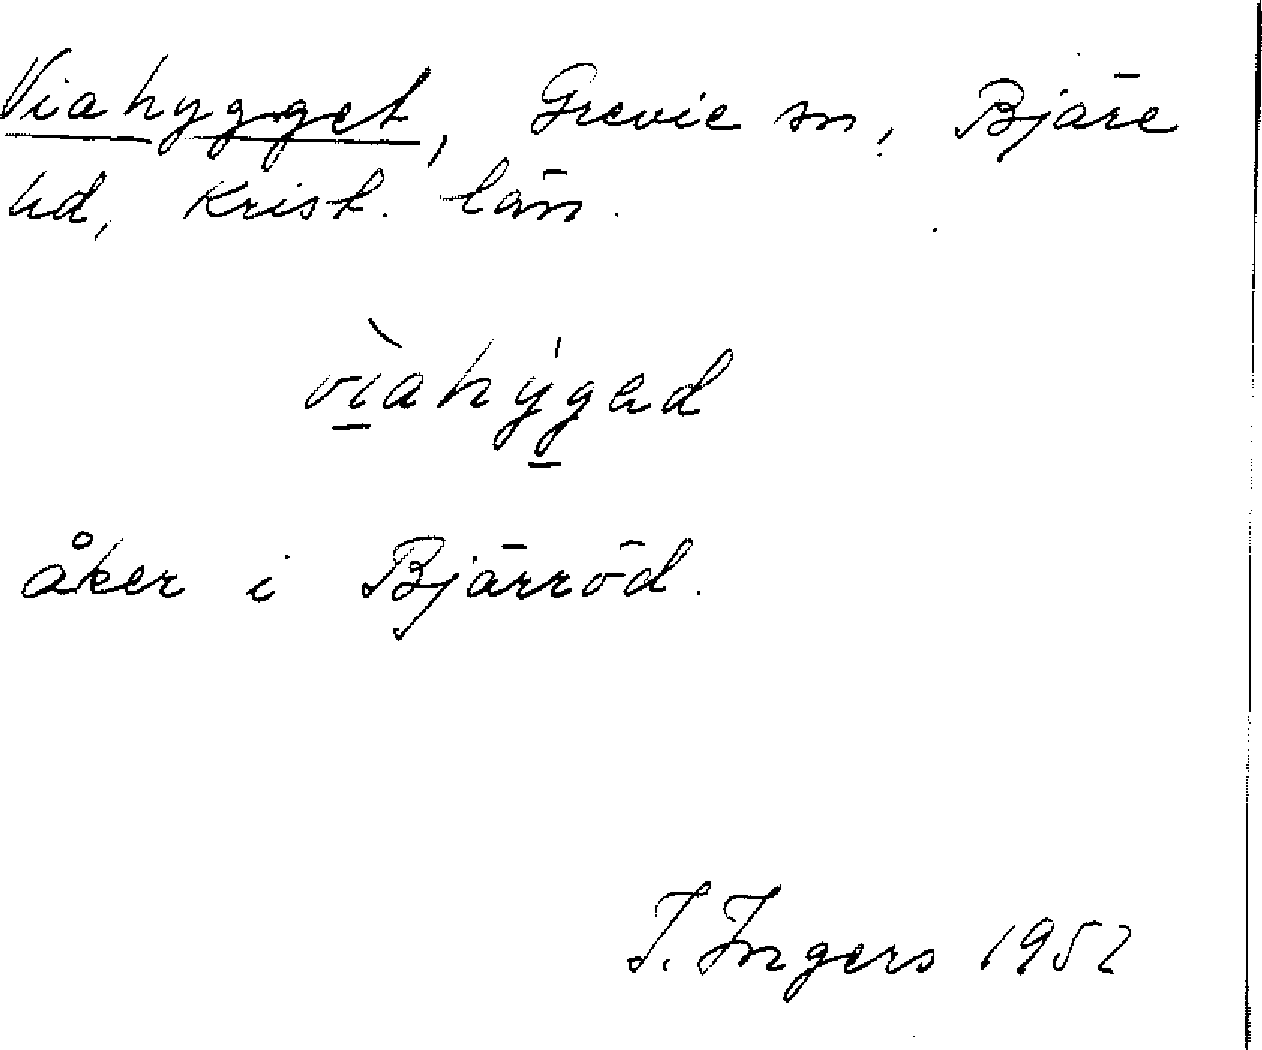 Viahygget, Grevie sn, Bjäre
hd, Krist. län.
vìahýgad
åker i Bjärröd.
I. Ingers 1952